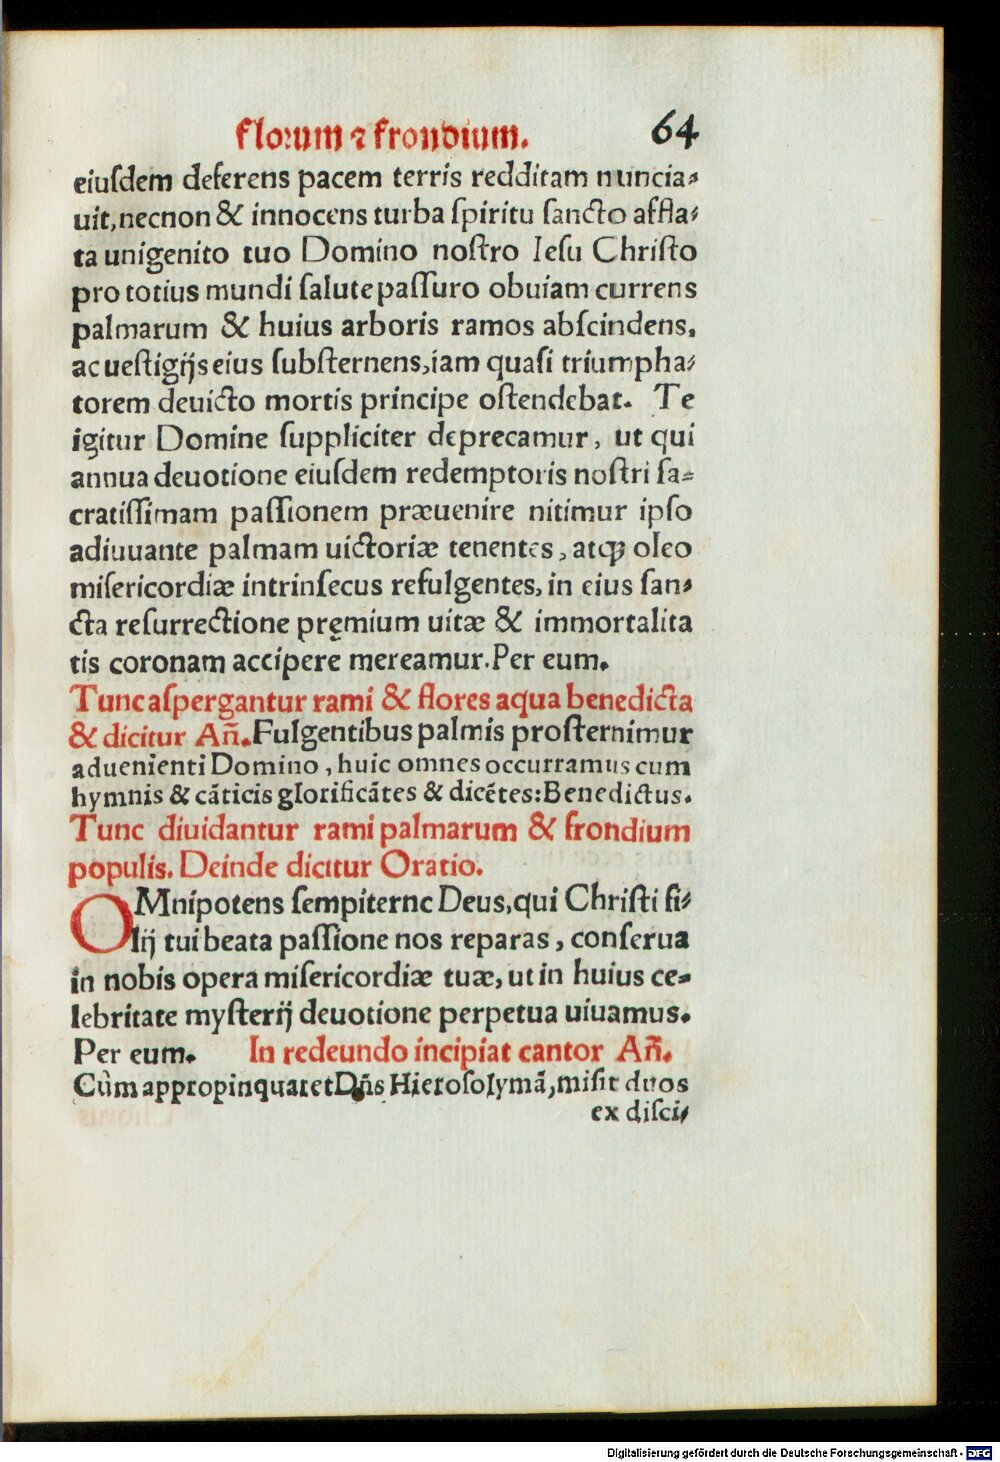 Florum ⁊ frondium. 64
eiuſdem deferens pacem terris redditam nuncia⸗
uit, necnon & innocens turba ſpiritu ſancto affla⸗
ta unigenito tuo Domino noſtro Ieſu Chriſto
pro totius mundi ſalute paſſuro obuiam currens
palmarum & huius arboris ramos abſcindens,
ac ueſtigijs eius ſubſternens, iam quaſi triumpha⸗
torem deuicto mortis principe oſtendebat. Te
igitur Domine ſuppliciter deprecamur, ut qui
annua deuotione eiuſdem redemptoris noſtri ſa⸗
cratiſſimam paſſionem præuenire nitimur ipſo
adiuuante palmam uictoriæ tenentes, atqꝫ oleo
miſericordiæ intrinſecus refulgentes, in eius ſan⸗
cta reſurrectione pręmium uitæ & immortalita
tis coronam accipere mereamur. Per eum.
Tunc aſpergantur rami & flores aqua benedicta
& dicitur Añ. Fulgentibus palmis proſternimur
aduenienti Domino, huic omnes occurramus cum
hymnis & cãticis glorificãtes & dicẽtes: Benedictus.
Tunc diuidantur rami palmarum & frondium
populis. Deinde dicitur Oratio.
OMnipotens ſempiterne Deus, qui Chriſti fi⸗
lij tui beata paſſione nos reparas, conſerua
in nobis opera miſericordiæ tuæ, ut in huius ce⸗
lebritate myſterij deuotione perpetua uiuamus.
Per eum. In redeundo incipiat cantor Añ.
Cùm appropinquaret Dñs Hieroſolymã, miſit duos
ex diſci⸗
Digitalisierung gefördert durch die Deutsche Forschungsgemeinschaft - DFG